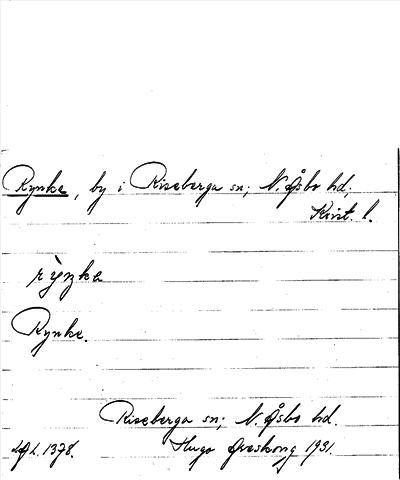 Rynke, by i Riseberga sn; N. Åsbo hd,
Krist. l.
rỳŋka
Rynke.
Riseberga sn; N. Åsbo hd.
Hugo Areskoug 1931.